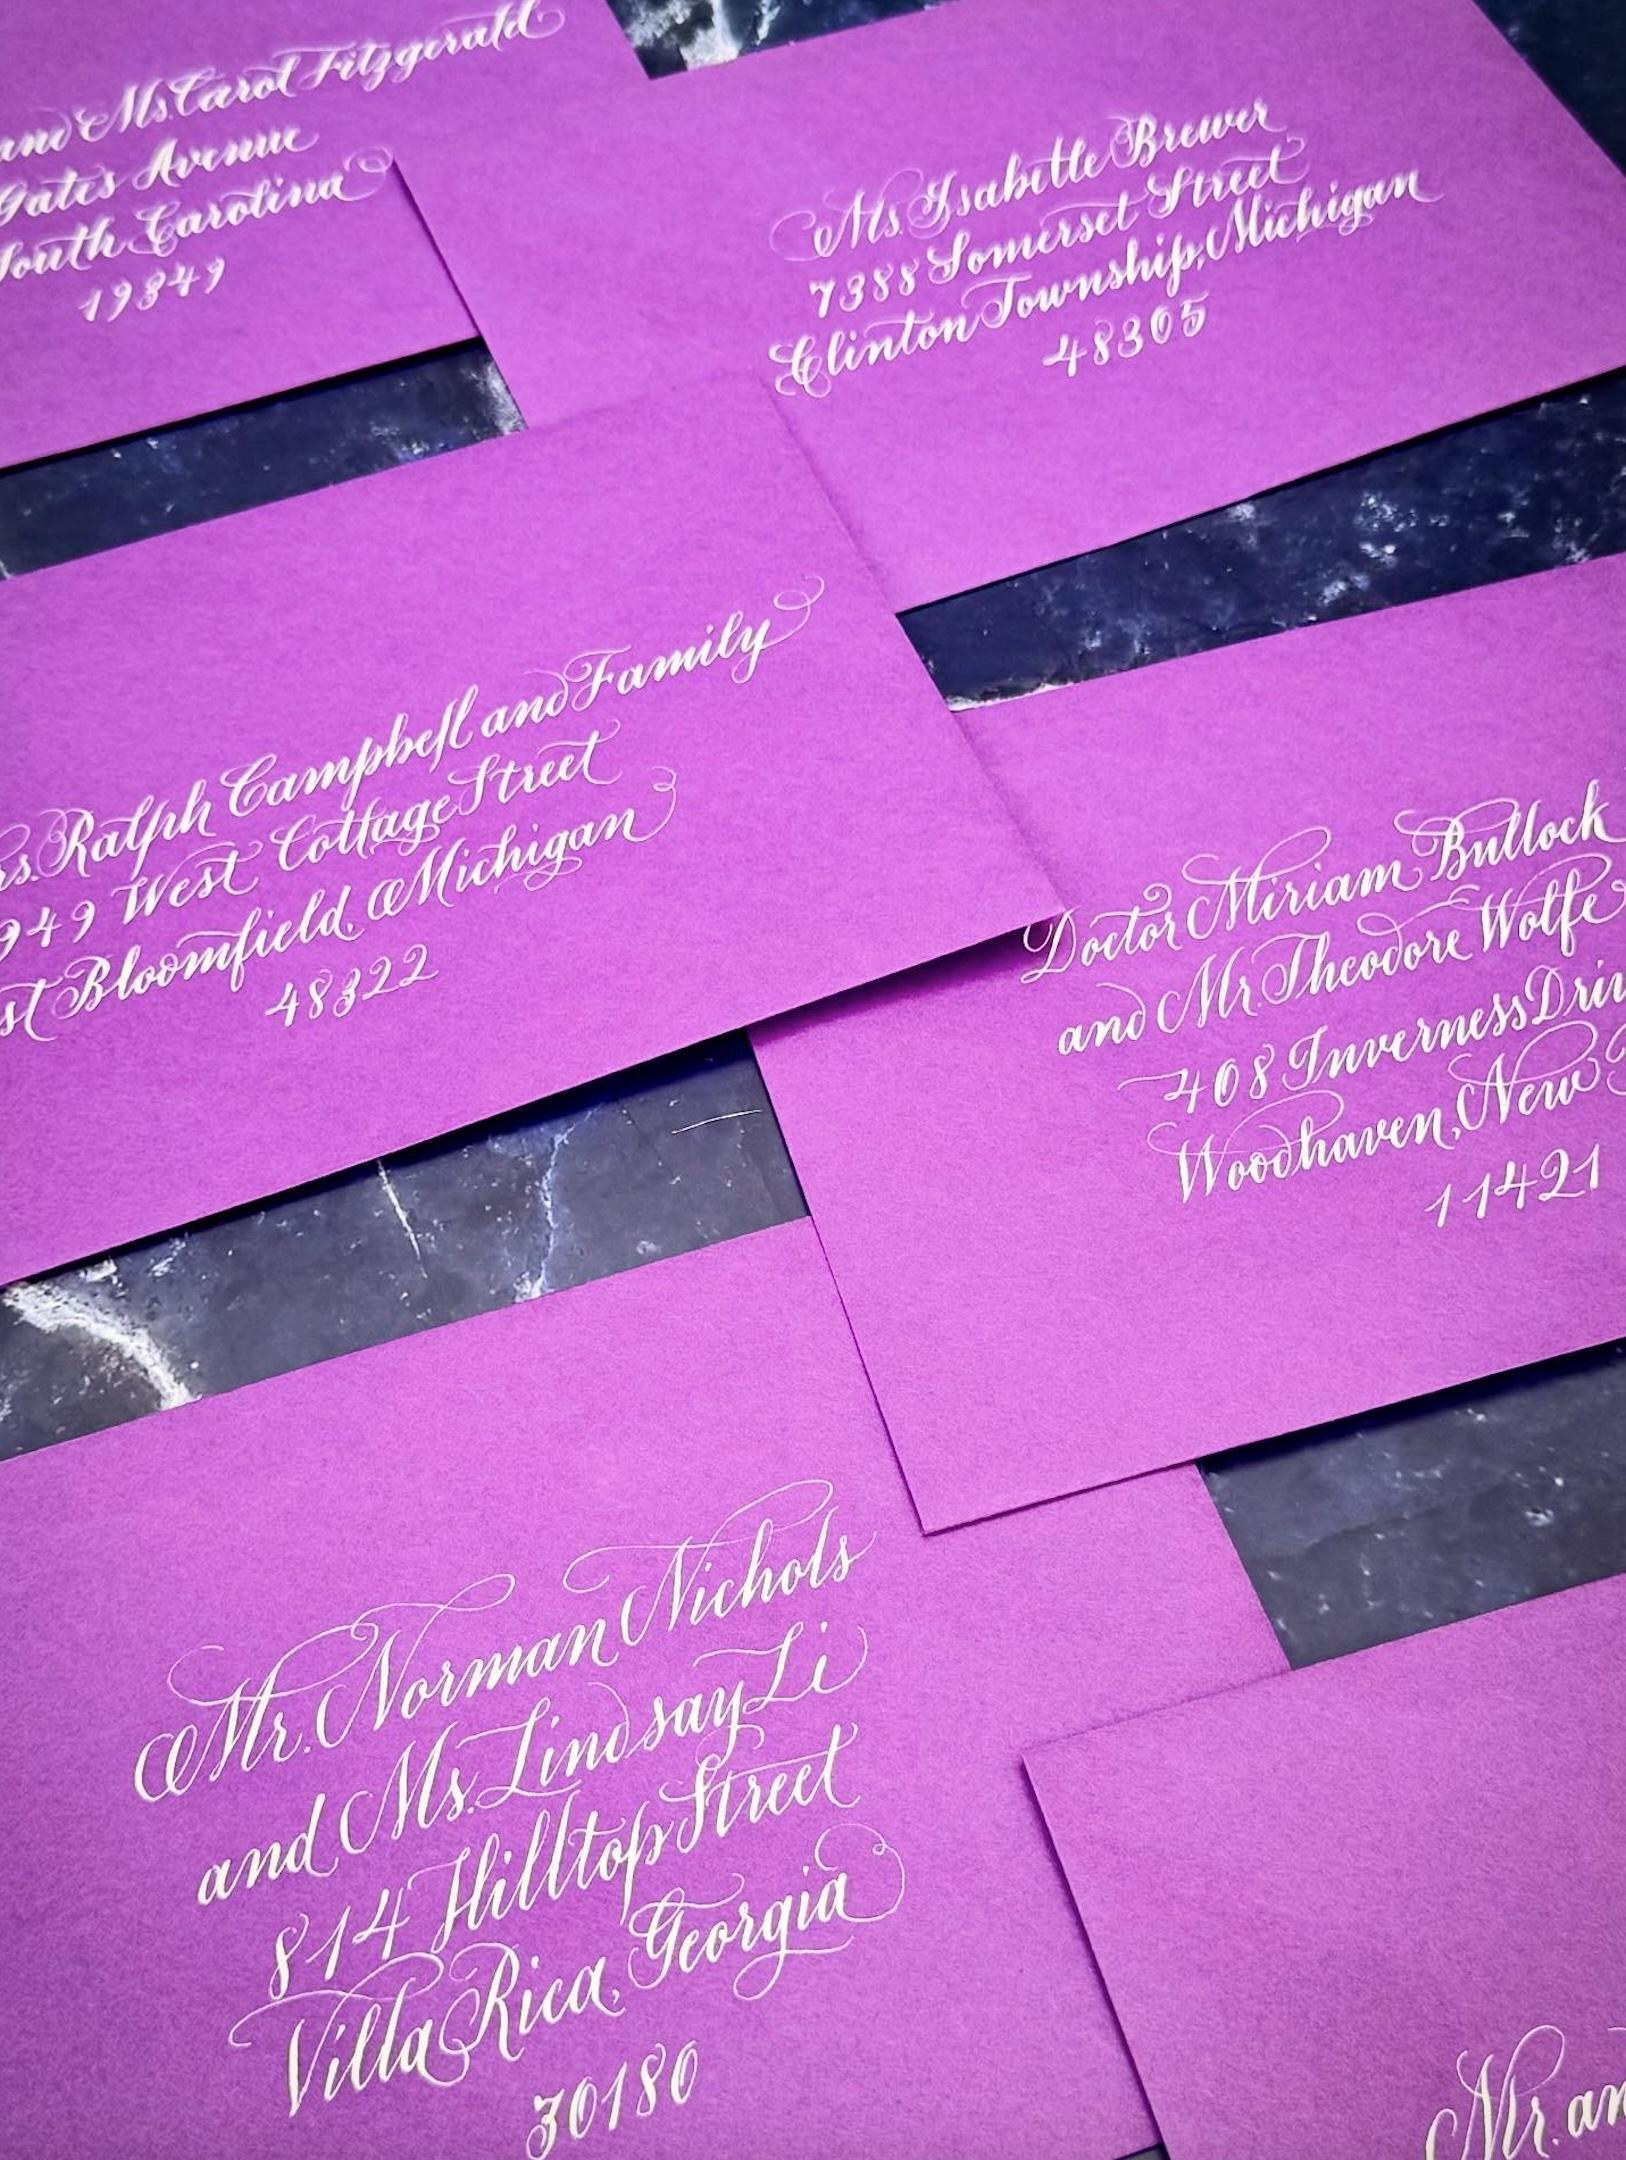 and Ms. Carol Fitzgerald
Gates Avenue
South Carolina
19849
Ms. Isabelle Brewer
7388 Somerset Street
Clinton Township, Michigan
48305
rs. Ralph Campbell and Family
949 West Cottage Street
st Bloomfield, Michigan
48322
Doctor Miriam Bullock
and Mr. Theodore Wolfe
408 Inverness Driv
Woodhaven, New
11421
Mr. Norman Nichols
and Ms. Lindsay Li
814 Hilltop Street
Villa Rica, Georgia
30180
Mr. an